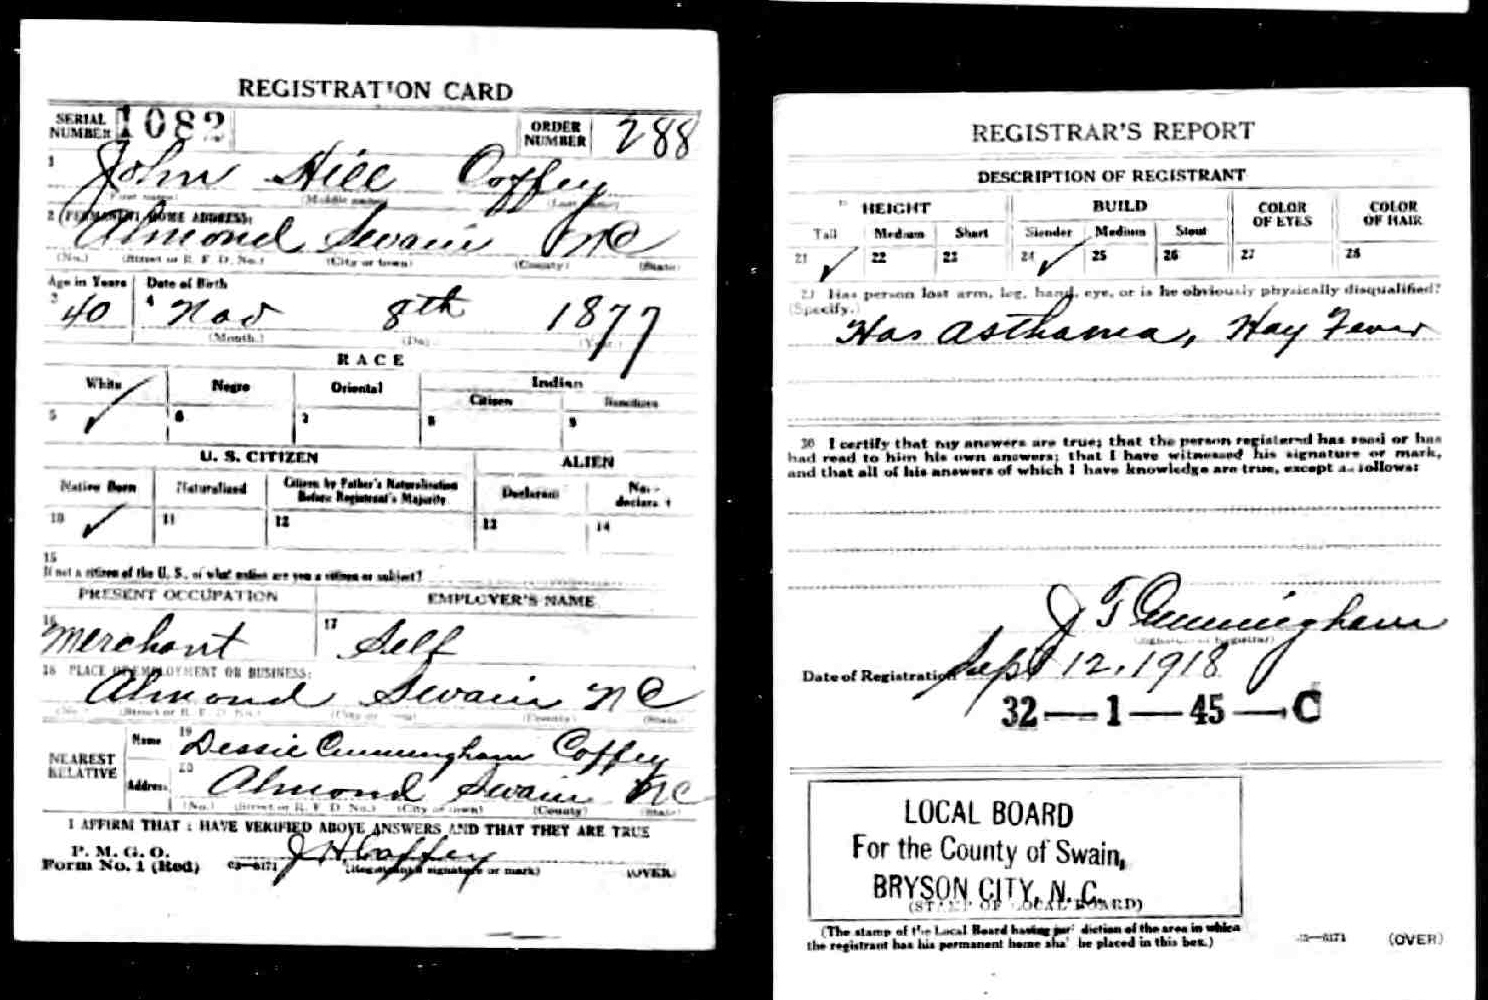 REGISTRATION CARD
SERIAL NUMBER 1082
ORDER NUMBER 288
1 John Hill Coffey
(First name) (Middle name) (Last name)
2 PERMANENT HOME ADDRESS:
Almond Swain NC
(No.) (Street or R. F. D. No.) (City or town) (County) (State)
Age in Years Date of Birth
3 40 4 Nov 8th 1877
(Month.) (Day.) (Year.)
RACE
White Negro Oriental Indian
Citizen
5 ✓ 6 7 8 9
U. S. CITIZEN ALIEN
Native Born Naturalized Citizen by Father's Naturalization Before Registrant's Majority Declarant Non-declarant
10 ✓ 11 12 13 14
15
If not a citizen of the U. S., of what nation are you a citizen or subject?
PRESENT OCCUPATION EMPLOYER'S NAME
16 Merchant 17 Self
18 PLACE OF EMPLOYMENT OR BUSINESS:
Almond Swain NC
(No.) (Street or R. F. D. No.) (City or town) (County) (State)
NEAREST RELATIVE
Name 19 Dessie Cunningham Coffey
Address 20 Almond Swain NC
(No.) (Street or R. F. D. No.) (City or town) (County) (State)
I AFFIRM THAT I HAVE VERIFIED ABOVE ANSWERS AND THAT THEY ARE TRUE
P. M. G. O.
Form No. 1 (Red) 03—6171 J H Coffey
(Registrant's signature or mark) (OVER)
REGISTRAR'S REPORT
DESCRIPTION OF REGISTRANT
HEIGHT BUILD COLOR OF EYES COLOR OF HAIR
Tall Medium Short Slender Medium Stout
21 ✓ 22 23 24 ✓ 25 26 27 28
29 Has person lost arm, leg, hand, eye, or is he obviously physically disqualified?
(Specify.)
Has Asthama, Hay Fever
30 I certify that my answers are true; that the person registered has read or has
had read to him his own answers; that I have witnessed his signature or mark,
and that all of his answers of which I have knowledge are true, except as follows:
J T Cunningham
(Signature of Registrar)
Date of Registration Sept 12, 1918
32—1—45—C
LOCAL BOARD
For the County of Swain,
BRYSON CITY, N. C.
(STAMP OF LOCAL BOARD)
(The stamp of the Local Board having jurisdiction of the area in which
the registrant has his permanent home shall be placed in this box.)
03—6171 (OVER)